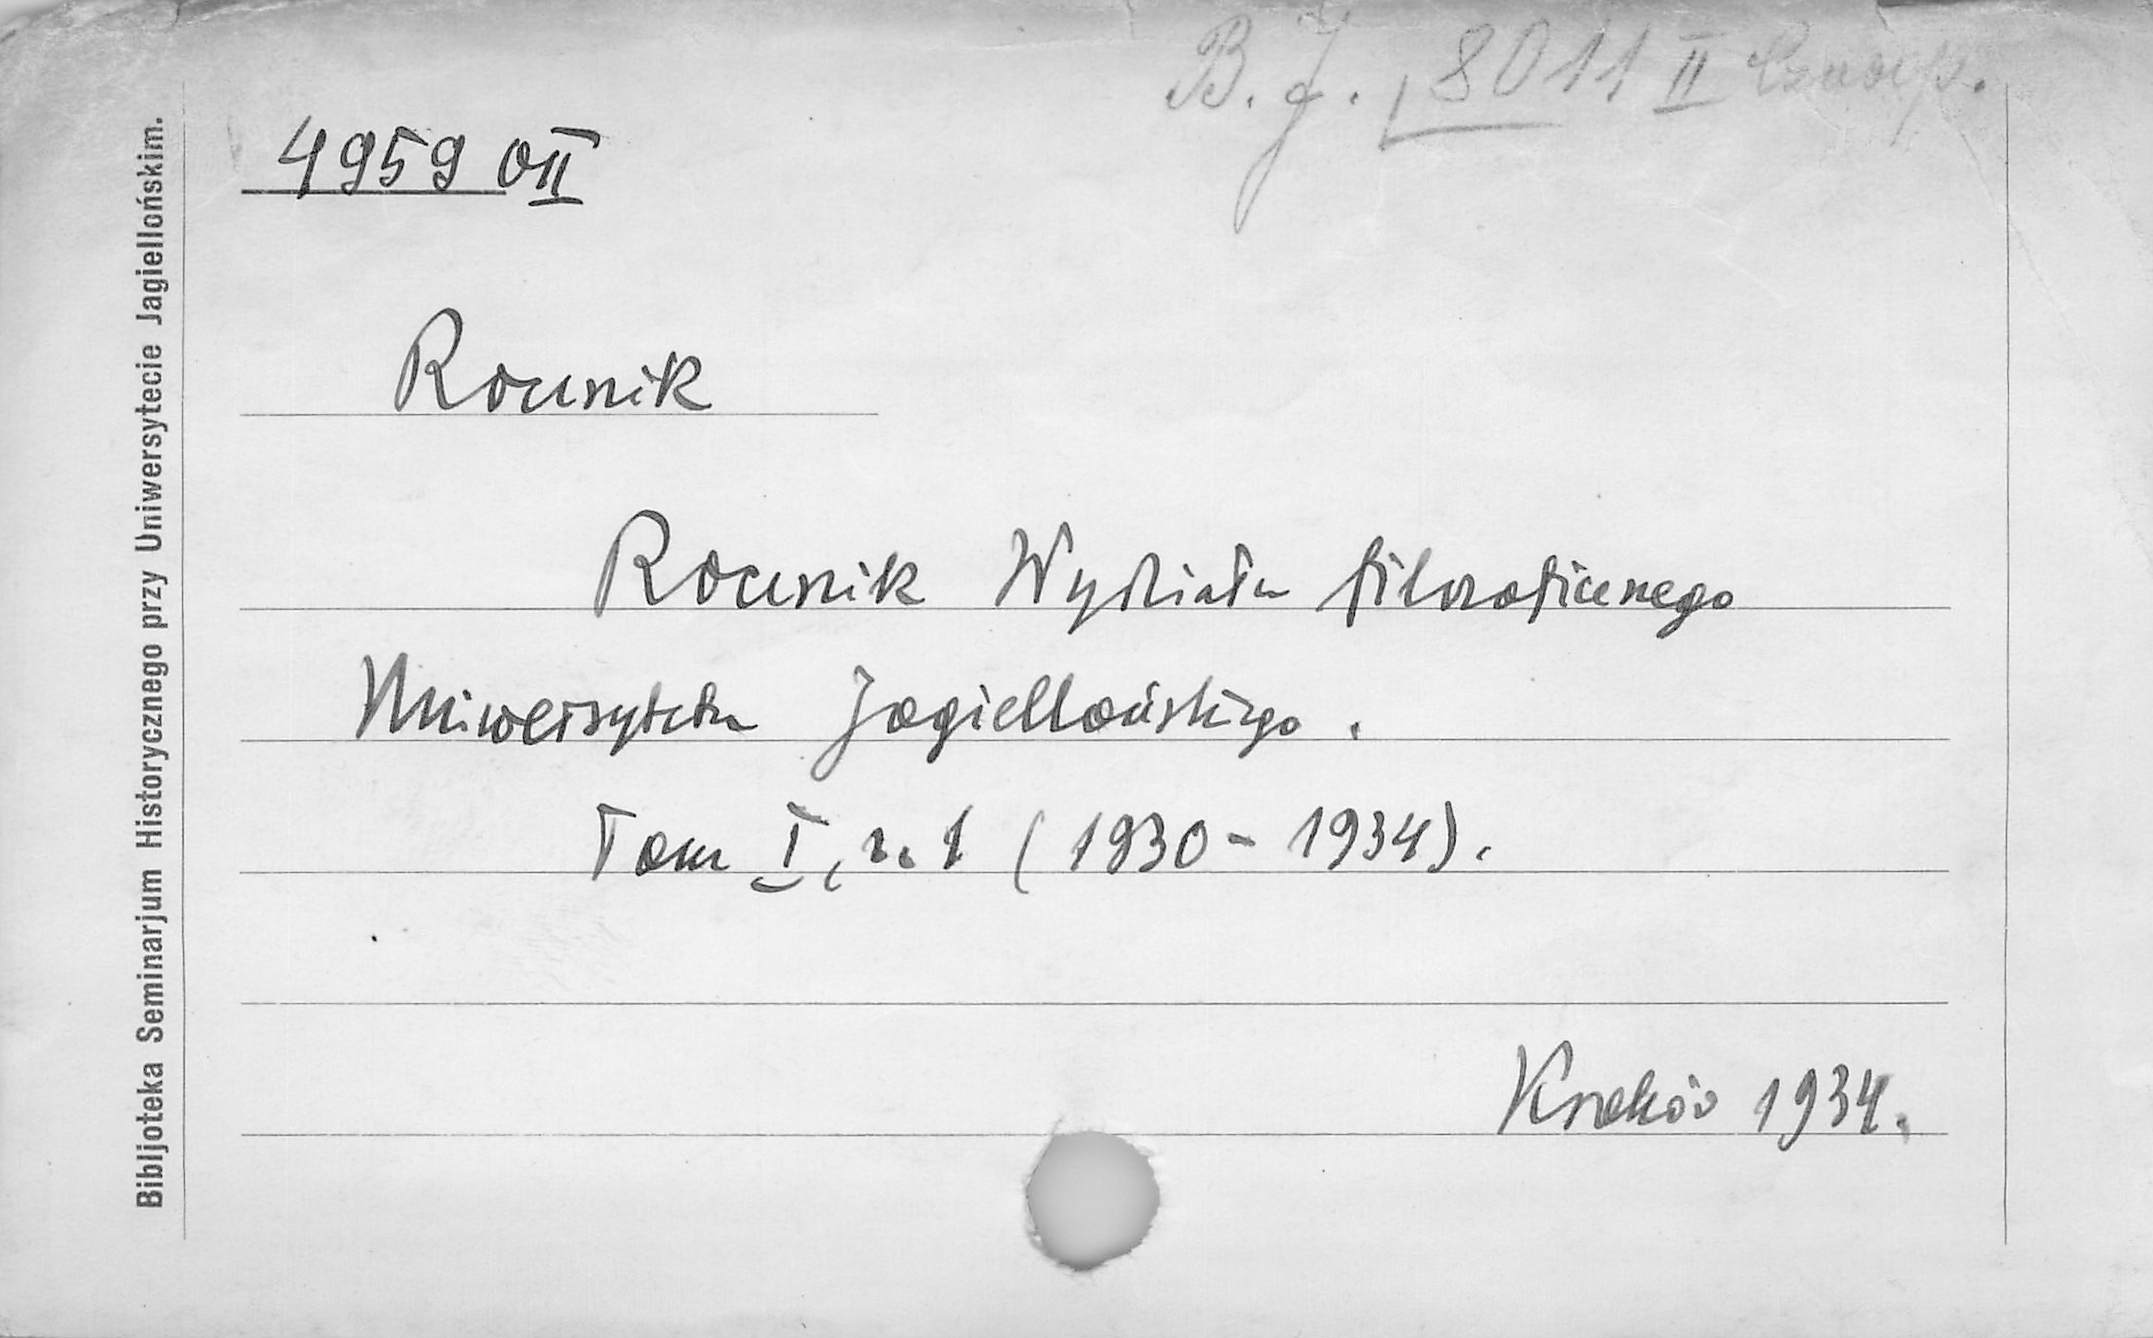 B. J. 8011 II Czasop.
4959 O II
Rocznik
Rocznik Wydziału filozoficznego
Uniwersytetu Jagiellońskiego.
Tom I, z. 1 (1930-1934).
Kraków 1934.
Bibljoteka Seminarjum Historycznego przy Uniwersytecie Jagiellońskim.